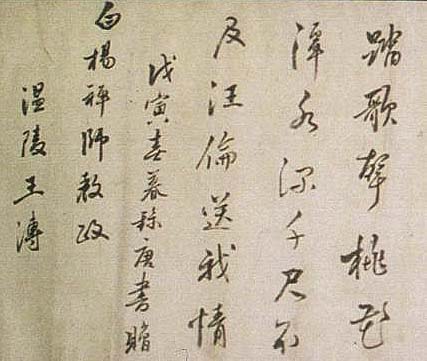 踏歌聲桃花
潭水深千尺不
及汪倫送我情
戊寅春暮唐書贈
白楊禪師教政
温陵王